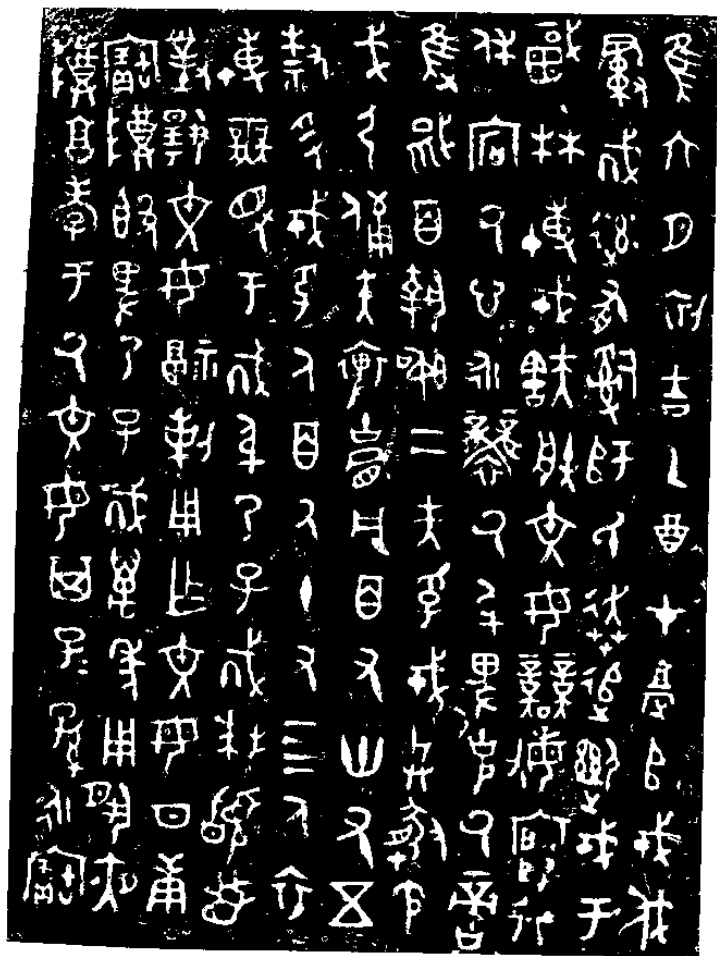 隹六月初吉乙酉才堂𠂤戎伐
𠭰㦰率有𤔲師氏奔追襲戎于
棫林博戎㝬朕文母競敏啟行
休宕厥心永襲厥身卑克厥啻
隻馘百執訊二夫孚戎兵盾矛
戈弓備矢裨冑凡百又卅又五
款捋戎孚人百又十又四人衣
博無尤于㦰身乃子㦰拜稽首
對揚文母福剌用乍文母日庚
寶尊彝卑乃子㦰萬年用夙夜
尊享孝于厥文母其子=孫=永寶